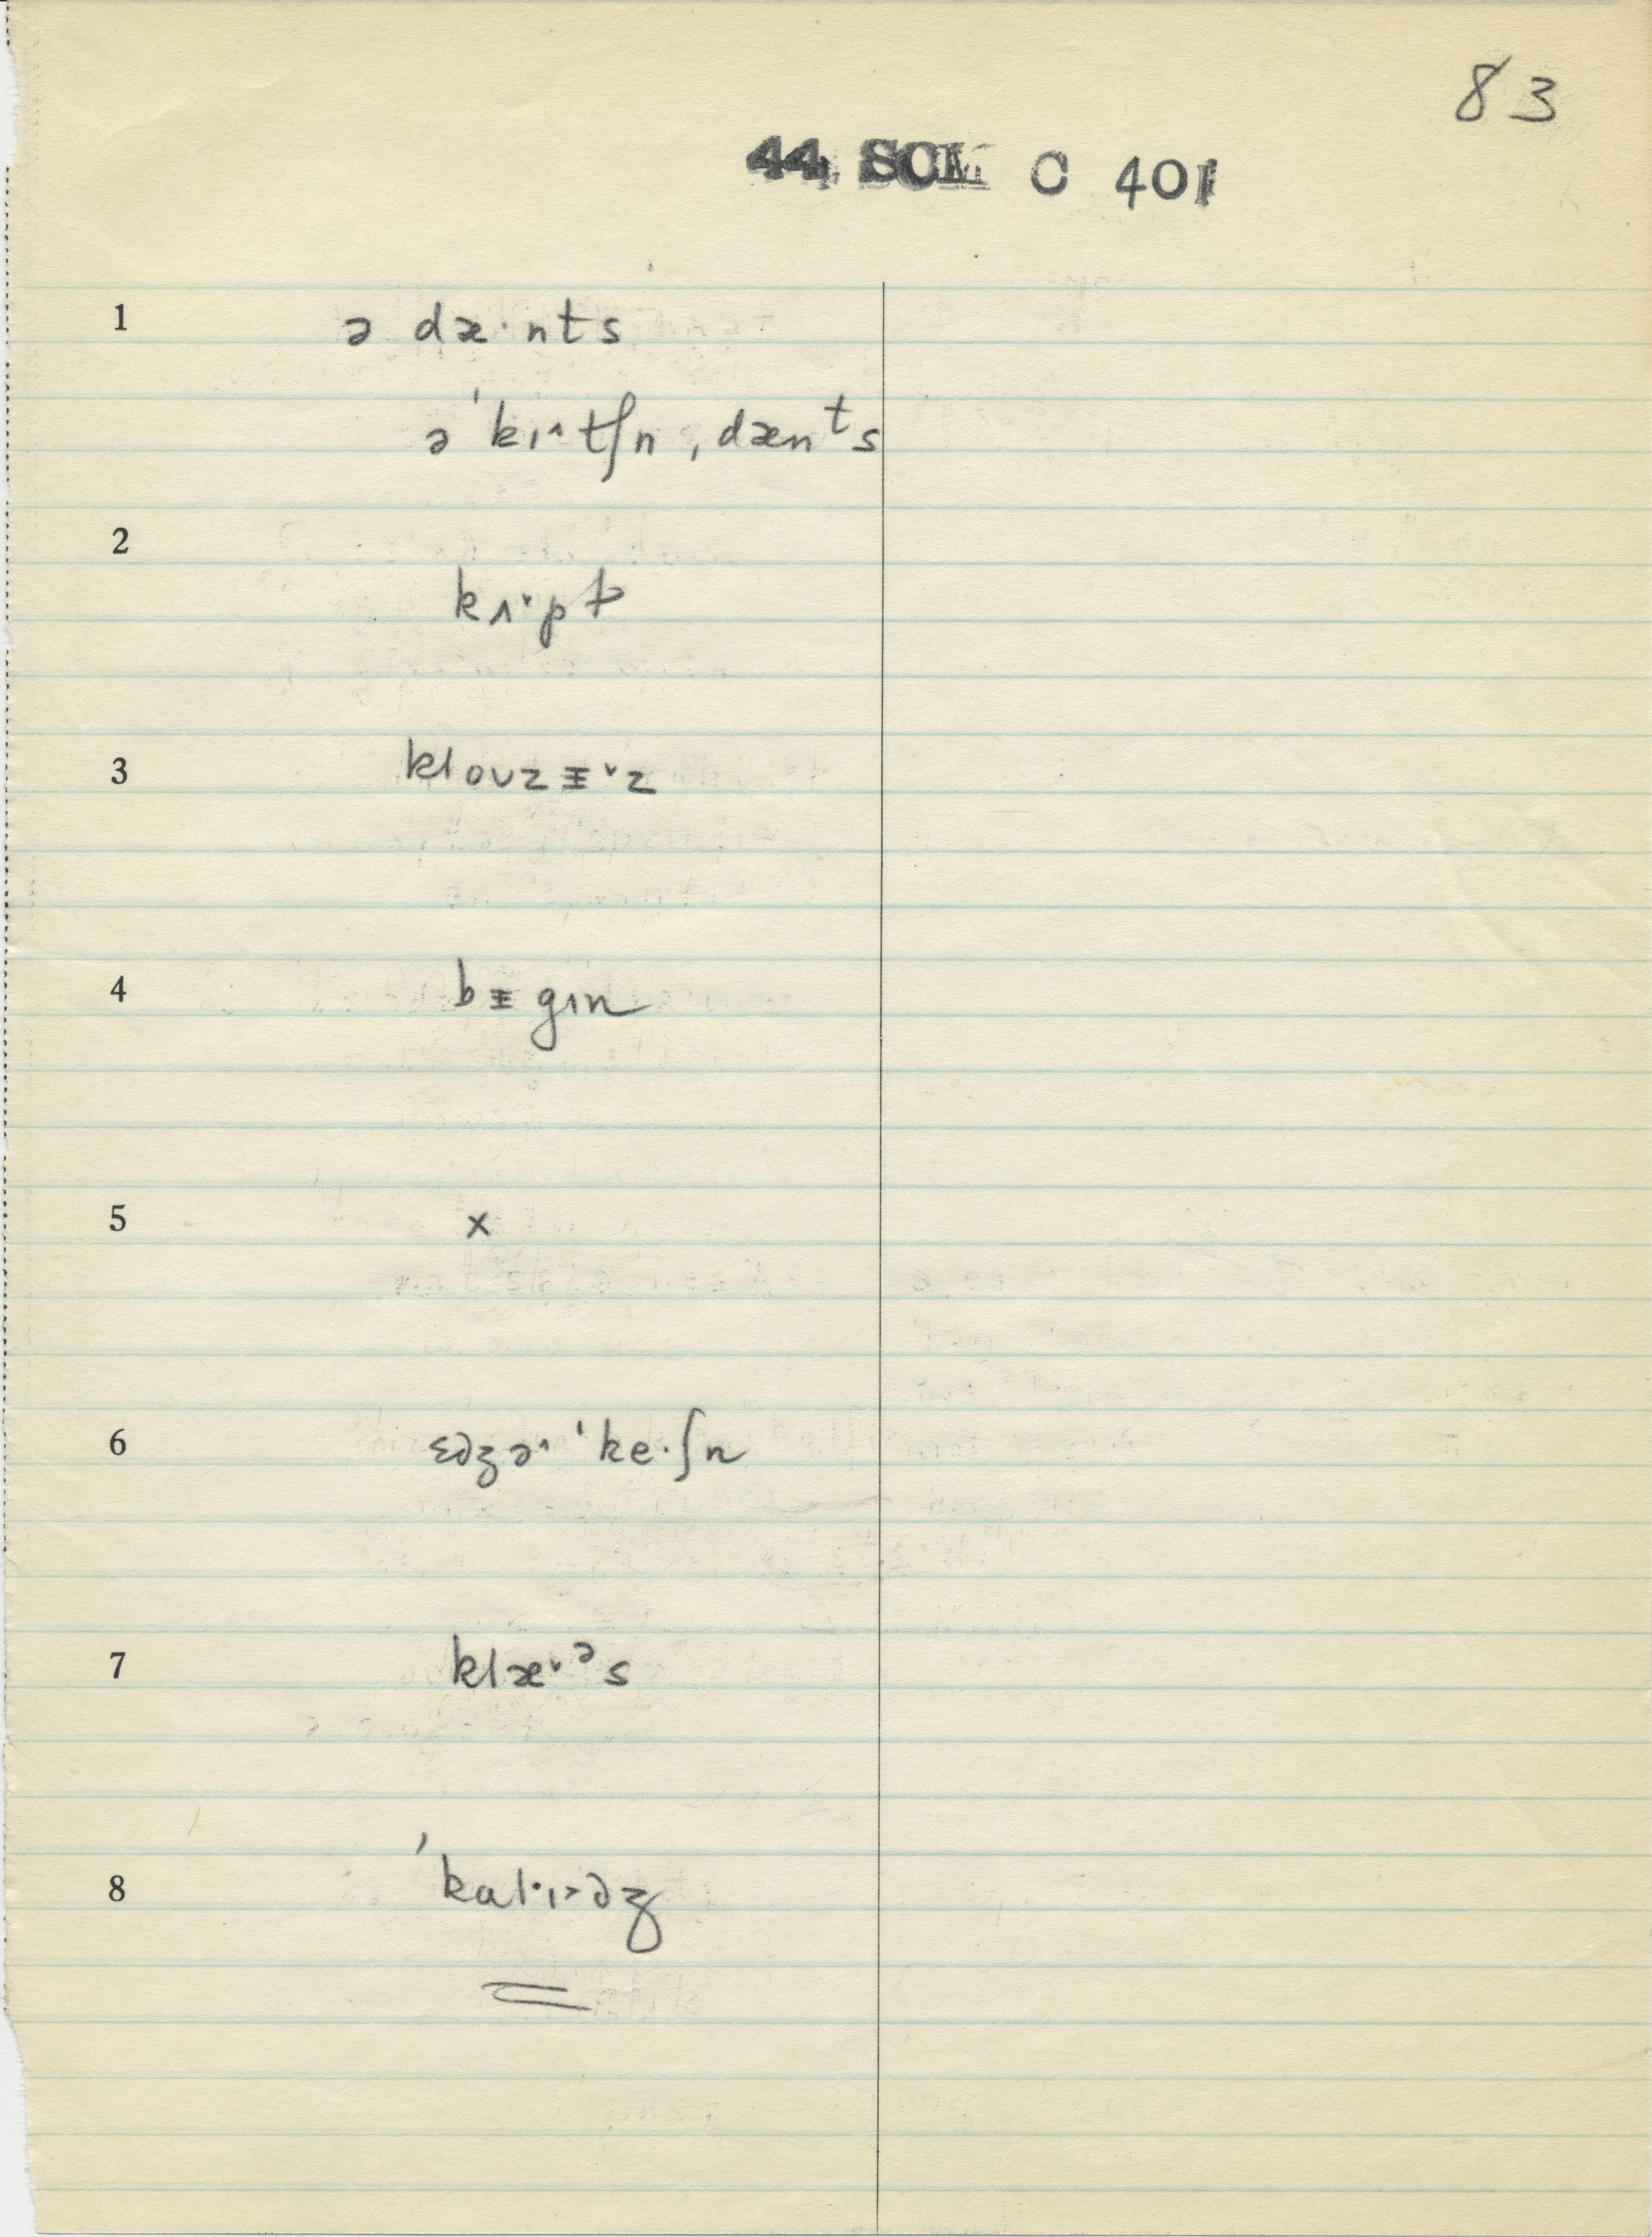 83
44 SCM C 401
1 ə dæ·nts
ə ˈkɪ˄tʃn ˌdænᵗs
2 kʌ˅·pt
3 kloʊzᵻ˅z
4 bᵻgɪn
5 x
6 ɛdʒə˄ ˈke·ʃn
7 klæ˅ᵊs
8 ˈkɑl·ɪ˃dʒ